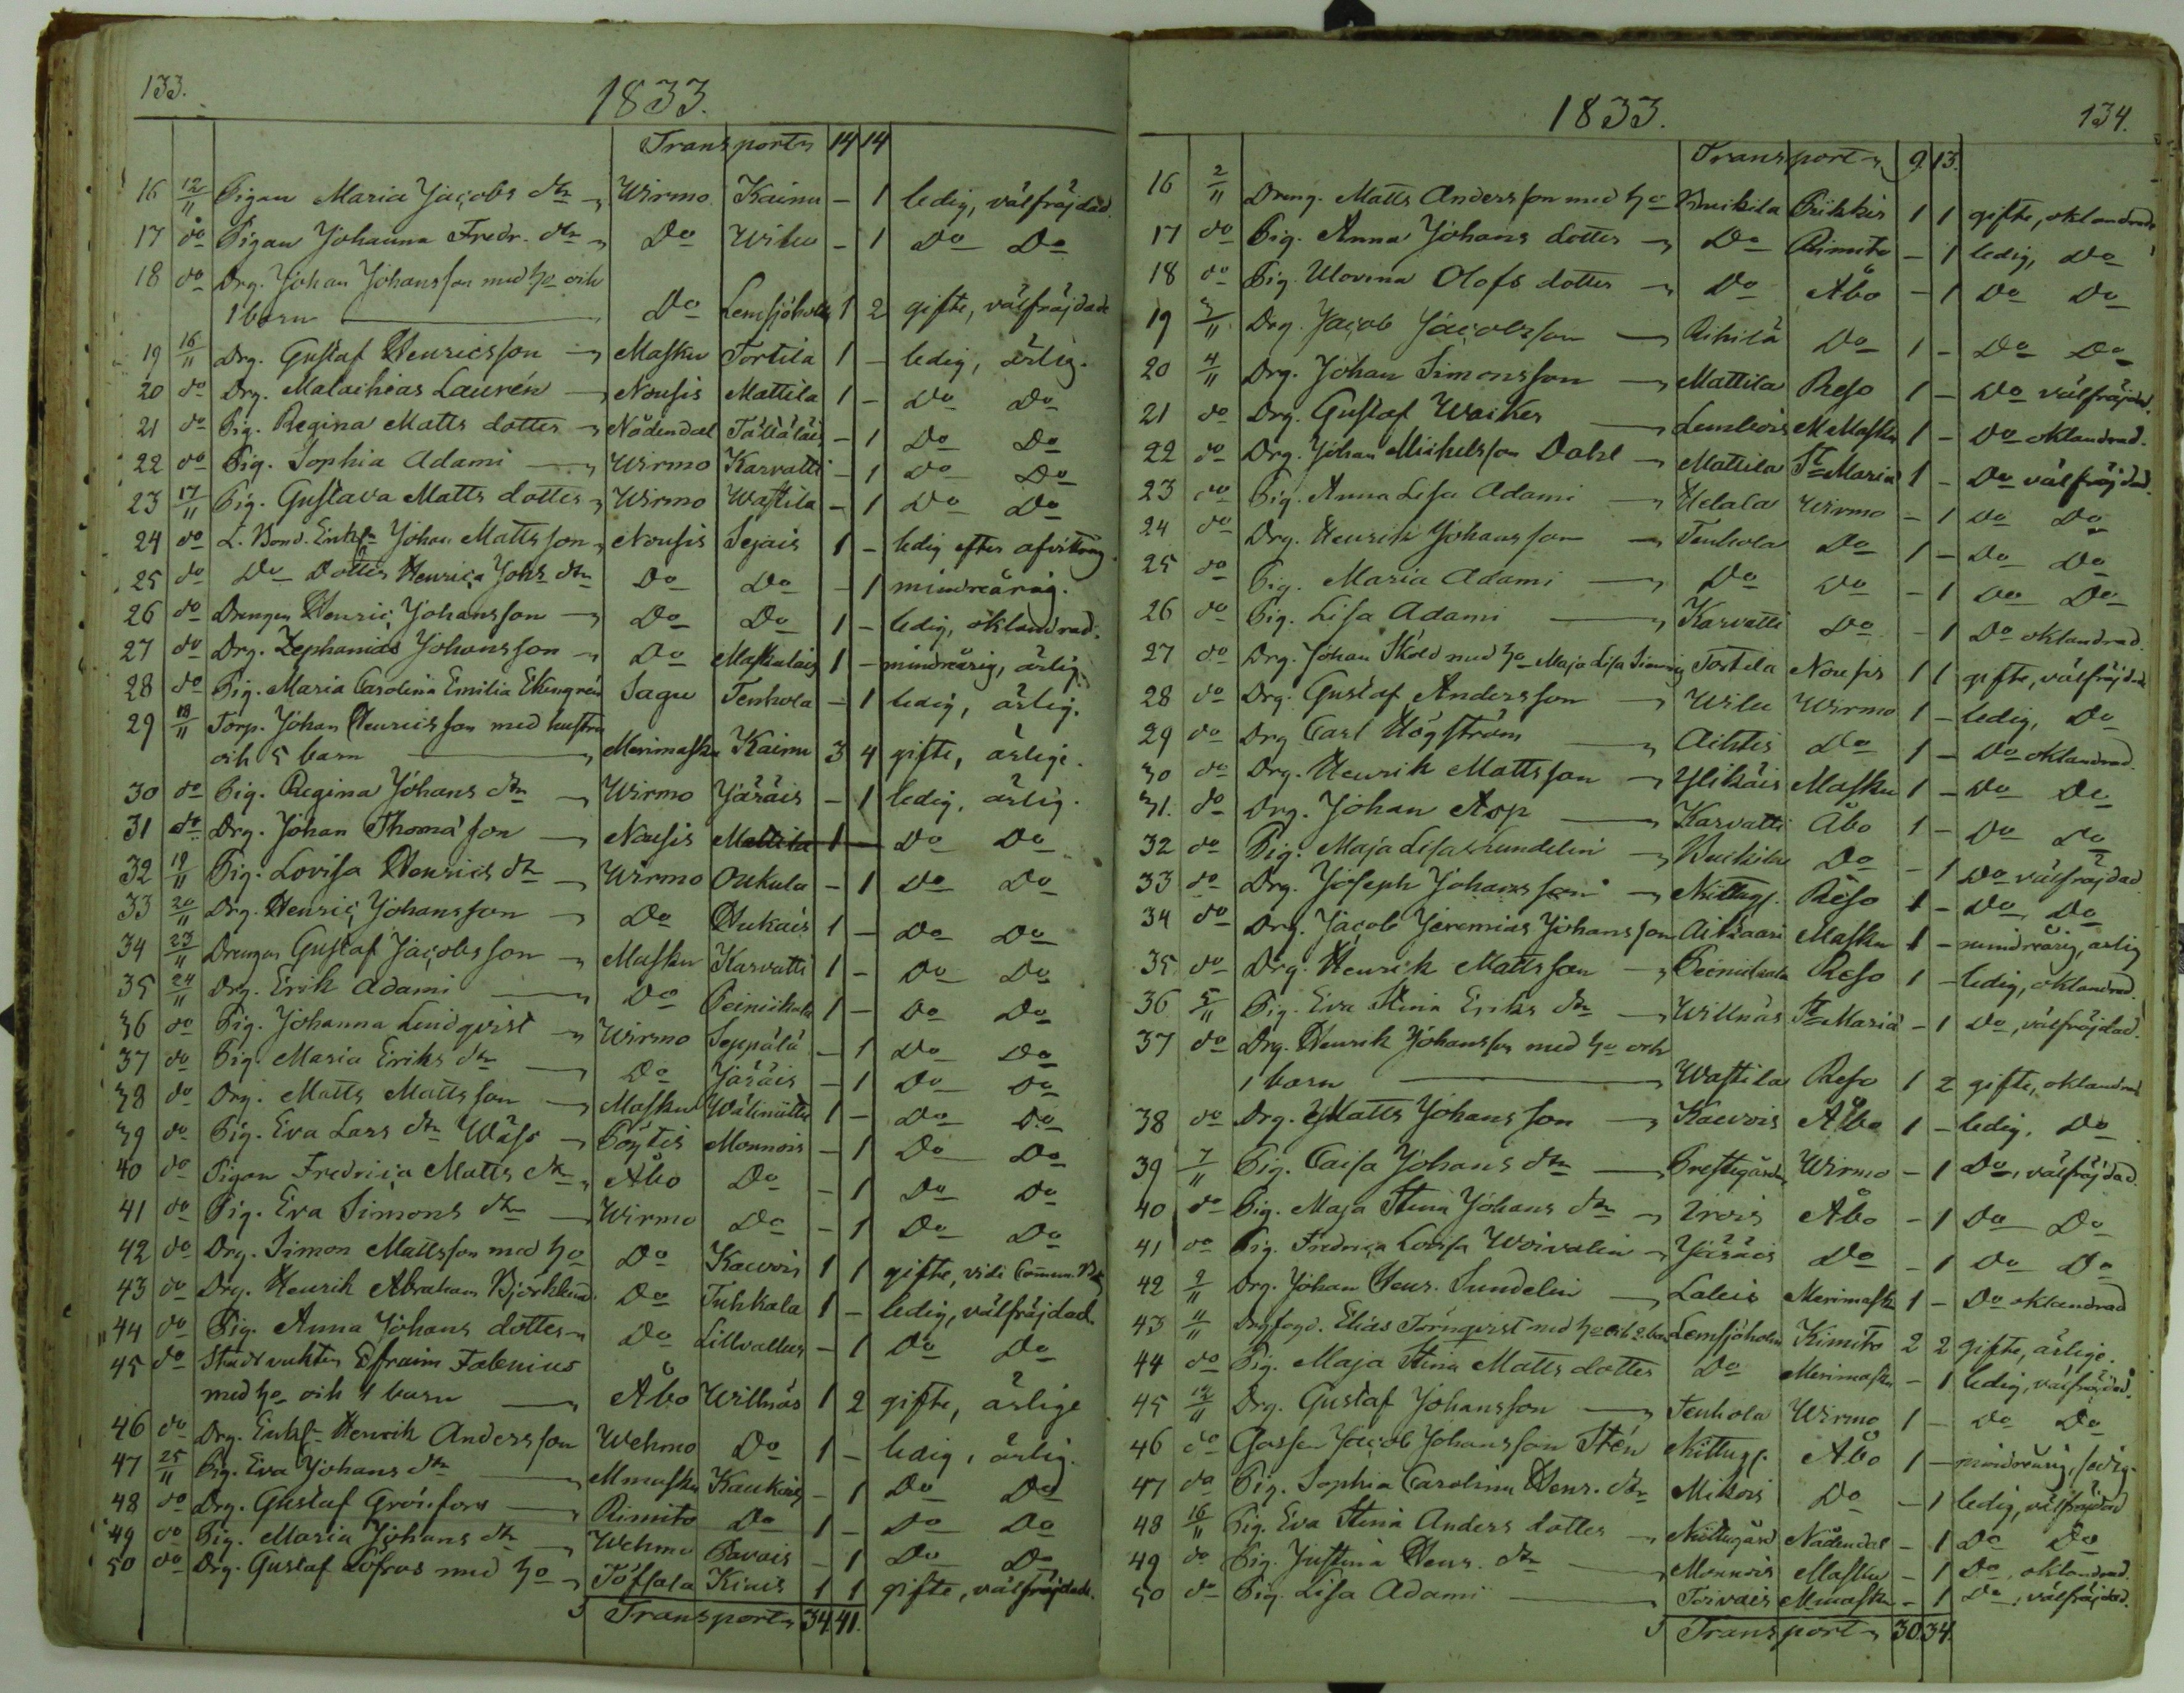 133.
1833.
Transport 14 14
16 12/11 Pigan Maria Jacobs dtr Wirmo Kainu - 1 ledig, välfräjdad.
17 do Pigan Johanna Fredr. dtr Do Wilu - 1 Do Do
18 do Drg. Johan Johansson med ho och
1 barn Do Lemsjöholm 1 2 gifte, välfräjdade
19 16/11 Drg. Gustaf Henricsson Masku Tortila 1 - ledig, ärlig.
20 do Drg. Malachias Laurén Nousis Mattila 1 - Do Do
21 do Pig. Regina Matts dotter Nådendal - 1 Do Do
22 do Pig. Sophia Adami Wirmo Karvatti - 1 Do Do
23 17/11 Pig. Gustava Matts dotter Wirmo Wastila - 1 Do Do
24 do L. Bond. Enkl. Johan Mattsson Nousis Sejais 1 - ledig efter afvittring.
25 do Do Dotter Henrica Johs dtr Do Do - 1 mindreårig.
26 do Drengen Henric Johansson Do Do 1 - ledig, oklandrad.
27 do Drg. Zephanias Johansson Do Maskulais 1 - mindreårig, ärlig.
28 do Pig. Maria Carolina Emilia Ekengrén Sagu Tenhola - 1 ledig, ärlig.
29 18/11 Torp. Johan Henricsson med hustru
och 5 barn Merimasku Kainu 3 4 gifte, ärlige.
30 do Pig. Regina Johans dtr Wirmo Järäis - 1 ledig, ärlig.
31 do Drg. Johan Thomasson Nousis Mattila 1 - Do Do
32 19/11 Pig. Lovisa Henrics dtr Wirmo Oukula - 1 Do Do
33 20/11 Drg. Henric Johansson Do Hukais 1 - Do Do
34 23/11 Drengen Gustaf Jacobsson Masku Karvatti 1 - Do Do
35 24/11 Drg. Erik Adami Do Peiniikala 1 - Do Do
36 do Pig. Johanna Lindqvist Wirmo Seppälä - 1 Do Do
37 do Pig. Maria Eriks dtr Do Järäis - 1 Do Do
38 do Drg. Matts Mattsson Masku Wälimittu 1 - Do Do
39 do Pig. Eva Lars dtr Wäss Pöytis Monnois - 1 Do Do
40 do Pigan Fredrica Matts dtr Åbo Do - 1 Do Do
41 do Pig. Eva Simons dtr Wirmo Do - 1 Do Do
42 do Drg. Simon Mattsson med ho Do Kaevois 1 1 gifte, vide Commun. B.
43 do Drg. Henrik Abraham Björklund Do Tuhkala 1 - ledig, välfräjdad.
44 do Pig. Anna Johans dotter Do Lillvallus - 1 Do Do
45 do Stadsvakten Efraim Falenius
med ho och 1 barn Åbo Willnäs 1 2 gifte, ärlige
46 do Drg. Enkl. Henrik Andersson Wehmo Do 1 - ledig, ärlig.
47 25/11 Pig. Eva Johans dtr Mmasku Kaukois - 1 Do Do
48 do Drg. Gustaf Grönfors Rimito Do 1 - Do Do
49 do Pig. Maria Johans dtr Wehmo Pavais - 1 Do Do
50 do Drg. Gustaf Löfros med ho Töfsala Kinis 1 1 gifte, välfräjdade.
Transport 34. 41.
1833.
134.
Transport 9. 13.
16 2/11 Dreng. Matts Andersson med ho Kuikila Piikkis 1 1 gifte, oklandrade
17 do Pig. Anna Johans dotter Do Rimito - 1 ledig, Do
18 do Pig. Ulovina Olofs dotter Do Åbo - 1 Do Do
19 3/11 Drg. Jacob Jacobsson Rihilä Do 1 - Do Do
20 4/11 Drg. Johan Simonsson Mattila Reso 1 - Do välfräjdad.
21 do Drg. Gustaf Waiker Lembois M Masku 1 - Do oklandrad.
22 do Drg. Johan Michelsson Dahl Mattila St Maria 1 - Do välfräjdad.
23 do Pig. Anna Lisa Adami Helala Wirmo - 1 Do Do
24 do Drg. Henrik Johansson Tenhola Do 1 - Do Do
25 do Pig. Maria Adami Do Do - 1 Do Do
26 do Pig. Lisa Adami Karvatti Do - 1 Do oklandrad.
27 do Drg. Johan Sköld med ho Maja Lisa Tortila Nousis 1 1 gifte, välfräjdade
28 do Drg. Gustaf Andersson Wilu Wirmo 1 - ledig, Do
29 do Drg Carl Högström Aihtis Do 1 - Do oklandrad.
30 do Drg. Henrik Mattsson Ylikäis Masku 1 - Do Do
31. do Drg. Johan Asp Karvatti Åbo 1 - Do Do
32 do Pig. Maja Lisa Lundelin Kuikila Do - 1 Do välfräjdad
33 do Drg. Joseph Johansson Nittugs. Reso 1 - Do Do
34 do Drg. Jacob Jeremias Johansson Aikaari Masku 1 - mindreårig, ärlig
35 do Drg. Henrik Mattsson Peiniikala Reso 1 - ledig, oklandrad.
36 5/11 Pig. Eva Stina Eriks dtr Willnäs St Maria - 1 Do, välfräjdad.
37 do Drg. Henrik Johansson med ho och
1 barn Wastila Reso 1 2 gifte, oklandrad
38 do Drg. Matts Johansson Kaevois Åbo 1 - ledig, Do
39 7/11 Pig. Caisa Johans dtr Prestegården Wirmo - 1 Do, välfräjdad.
40 do Pig. Maja Stina Johans dtr Irois Åbo - 1 Do Do
41 do Pig. Fredrica Lovisa Woivalin Järäis Do - 1 Do Do
42 9/11 Drg. Johan Henr. Sundelin Laleis Merimasku 1 - Do oklandrad
43 11/11 Drgfogd. Elias Törnqvist med ho och 2 barn Lemsjöholm Kimito 2 2 gifte, ärlige.
44 do Pig. Maja Stina Matts dotter Do Merimasku - 1 ledig, välfräjdad.
45 12/11 Drg. Gustaf Johansson Tenhola Wirmo 1 - Do Do
46 do Gossen Jacob Johansson Stén Nittugs. Åbo 1 - mindreårig, ledig.
47 do Pig. Sophia Carolina Henr. dtr Mikois Do - 1 ledig, välfräjdad
48 16/11 Pig. Eva Stina Anders dotter Nittugård Nådendal - 1 Do Do
49 do Pig. Justina Henr. dtr Monnois Masku - 1 Do, oklandrad.
50 do Pig. Lisa Adami Toivais Mmasku - 1 Do, välfräjdad.
Transport 30. 34.